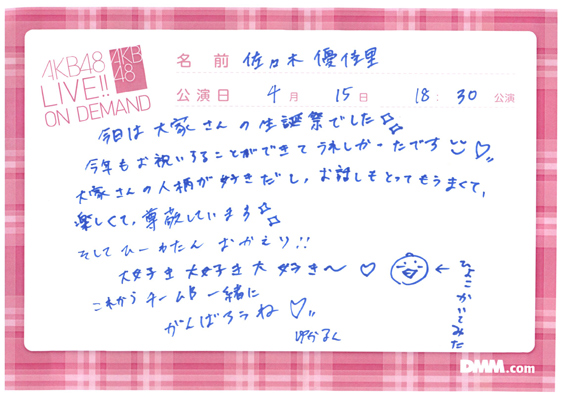 AKB48
LIVE!!
ON DEMAND
AKB
48
名前 佐々木優佳里
公演日 4月 15日 18:30 公演
今日は大家さんの生誕祭でした☆☆
今年もお祝いすることができてうれしかったです♡
大家さんの人柄が好きだし、お話しもとってもうまくて、
楽しくて、尊敬しています☆☆
そしてひーわたん おかえり!!
大好き大好き大好き〜♡
これからチームB一緒に
がんばろうね♡
ゆかるん
←ひよこかいてみた
DMM.com